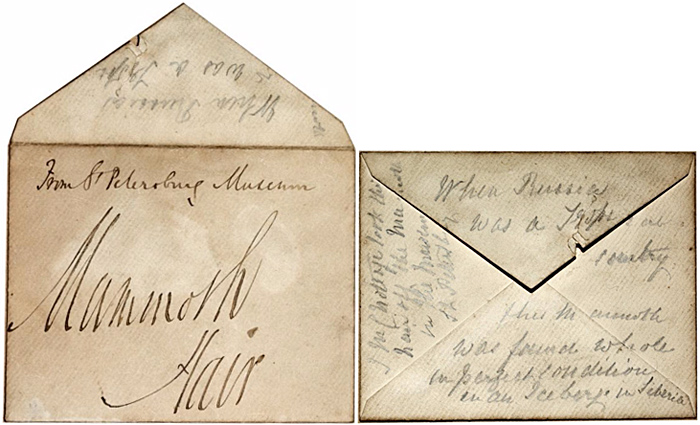 When Russia
was a Tropi
From St Petersburg Museum
Mammoth
Hair
When Russia
was a Tropi cal
country
this Mammoth
was found whole
in perfect condition
in an Iceberg in Siberia
took this
hair off the Mammoth
in the Museum